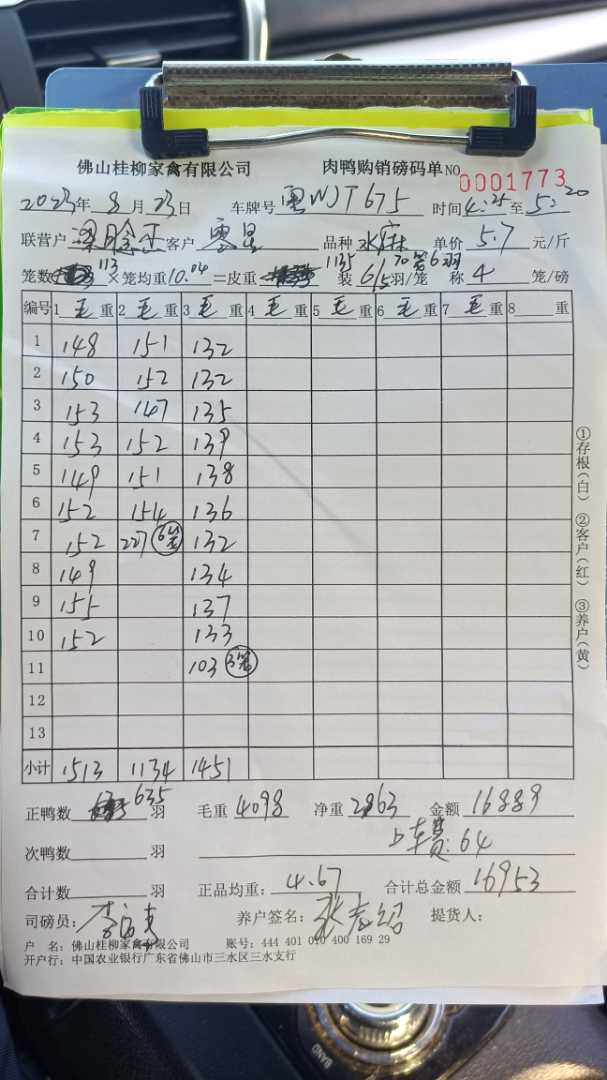 佛山桂柳家禽有限公司 肉鸭购销磅码单 NO 0001773
2023年 8月23日 车牌号 粤WJT675 时间4:25至5:20
联营户 客户 粤星 品种 水麻 单价 5.7 元/斤
笼数 113 ×笼均重10.04=皮重 1135 装 6/5羽/笼 70笼6羽 称 4 笼/磅
编号 1 毛 重 2 毛 重 3 毛 重 4 毛 重 5 毛 重 6 毛 重 7 毛 重 8 重
1 148 151 132
2 150 152 132
3 153 147 135
4 153 152 139
5 149 151 138
6 152 154 136
7 152 227 6笼 132
8 149 134
9 155 137
10 152 133
11 103 3笼
12
13
小计 1513 1134 1451
正鸭数 635 羽 毛重 4098 净重 2963 金额 16889
次鸭数 羽 上车费:64
合计数 羽 正品均重: 4.67 合计总金额 16953
司磅员: 养户签名: 提货人:
户 名: 佛山桂柳家禽有限公司 账号: 444 401 010 400 169 29
开户行: 中国农业银行广东省佛山市三水区三水支行
①存根(白) ②客户(红) ③养户(黄)
BAND